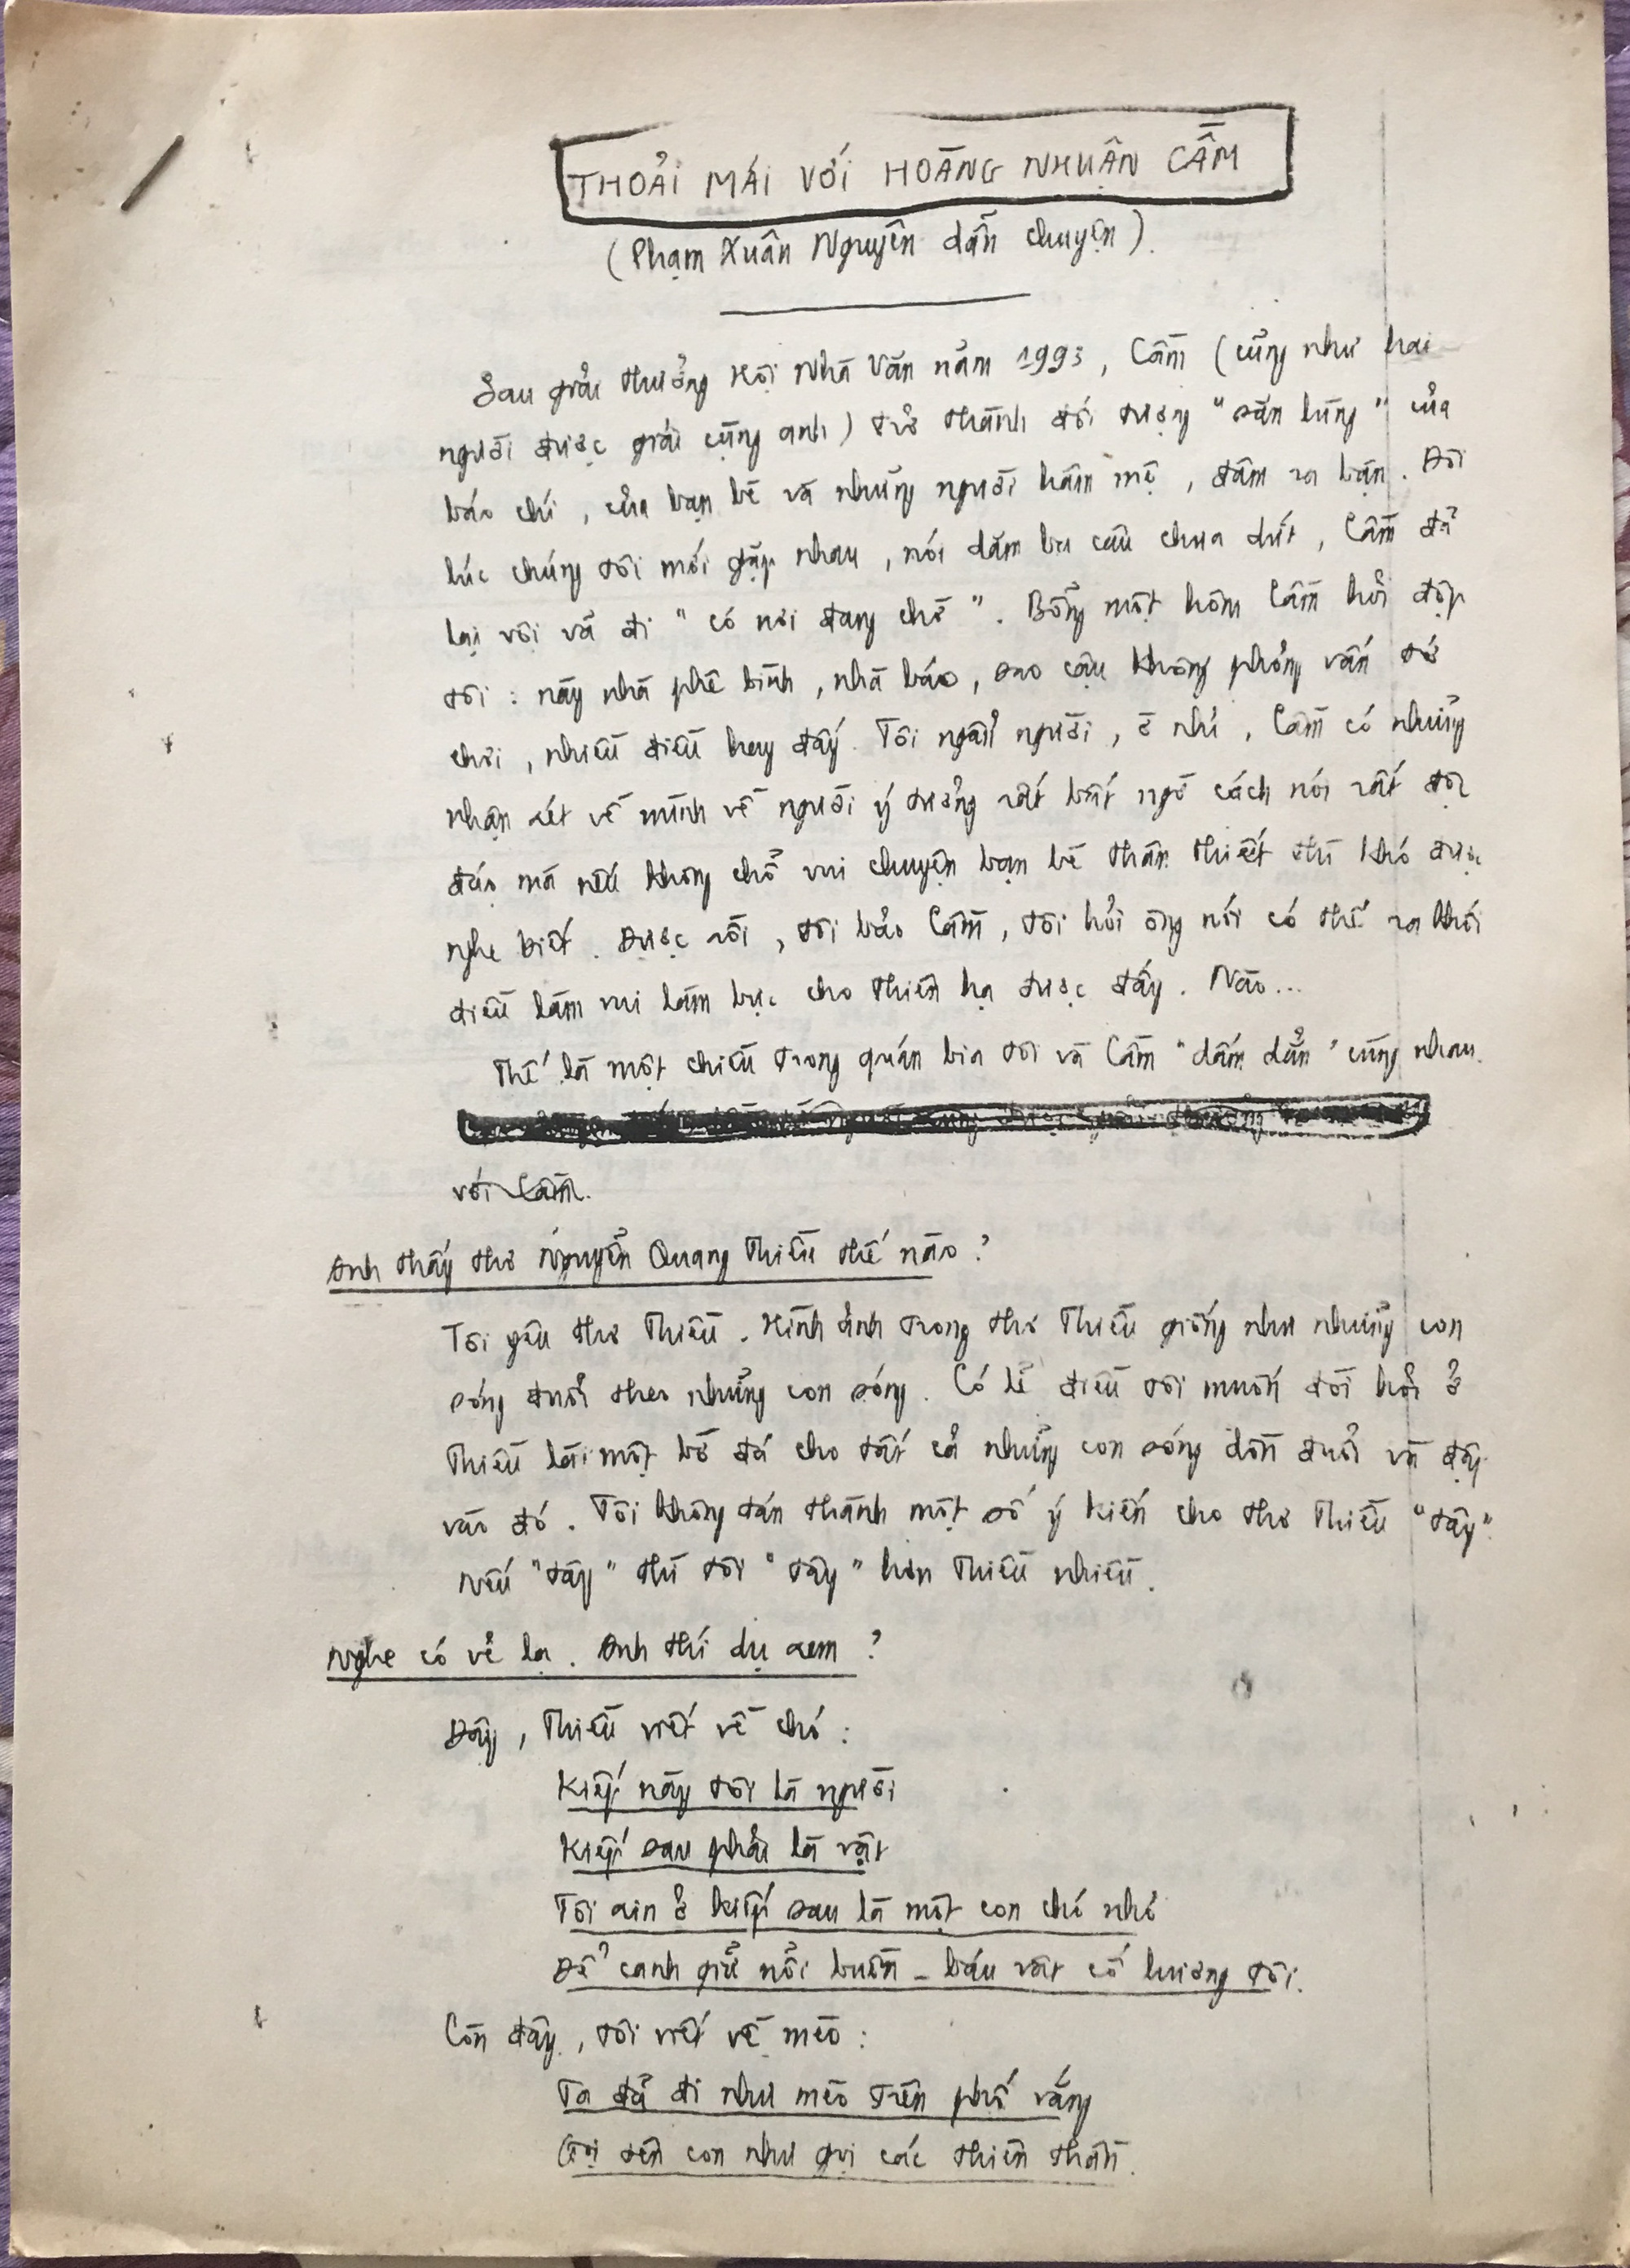 THOẢI MÁI VỚI HOÀNG NHUẬN CẦM
(Phạm Xuân Nguyên dẫn chuyện).
Sau giải thưởng Hội Nhà Văn năm 1993, Cầm (cũng như hai
người được giải cùng anh) trở thành đối tượng "săn lùng" của
báo chí, của bạn bè và những người hâm mộ, đâm ra bận. Đôi
lúc chúng tôi mới gặp nhau, nói dăm ba câu chưa dứt, Cầm đã
lại vội vã đi "có nơi đang chờ". Bỗng một hôm Cầm hỏi độp
tôi: này nhà phê bình, nhà báo, sao cậu không phỏng vấn tớ
chơi, nhiều điều hay đấy. Tôi ngẩn người, ờ nhỉ, Cầm có những
nhận xét về mình về người ý tưởng rất bất ngờ cách nói rất độc
đáo mà nếu không chỗ vui chuyện bạn bè thân thiết thì khó được
nghe biết. Được rồi, tôi bảo Cầm, tôi hỏi ông nói có thể ra khối
điều làm vui làm bực cho thiên hạ được đấy. Nào...
Thế là một chiều trong quán bia tôi và Cầm "dấm dẳn" cùng nhau.
với Cầm.
Anh thấy thơ Nguyễn Quang Thiều thế nào?
Tôi yêu thơ Thiều. Hình ảnh trong thơ Thiều giống như những con
sóng đuổi theo những con sóng. Có lẽ điều tôi muốn đòi hỏi ở
Thiều là một bờ đá cho tất cả những con sóng dồn đuổi và đập
vào đó. Tôi không tán thành một số ý kiến cho thơ Thiều "tây"
Nếu "tây" thì tôi "tây" hơn Thiều nhiều.
Nghe có vẻ lạ. Anh thí dụ xem?
Đây, Thiều viết về chó:
Kiếp này tôi là người
Kiếp sau phải là vật
Tôi xin ở kiếp sau là một con chó nhỏ
Để canh giữ nỗi buồn - báu vật cố hương tôi.
Còn đây, tôi viết về mèo:
Ta đã đi như mèo trên phố vắng
Gọi tên con như gọi các thiên thần.